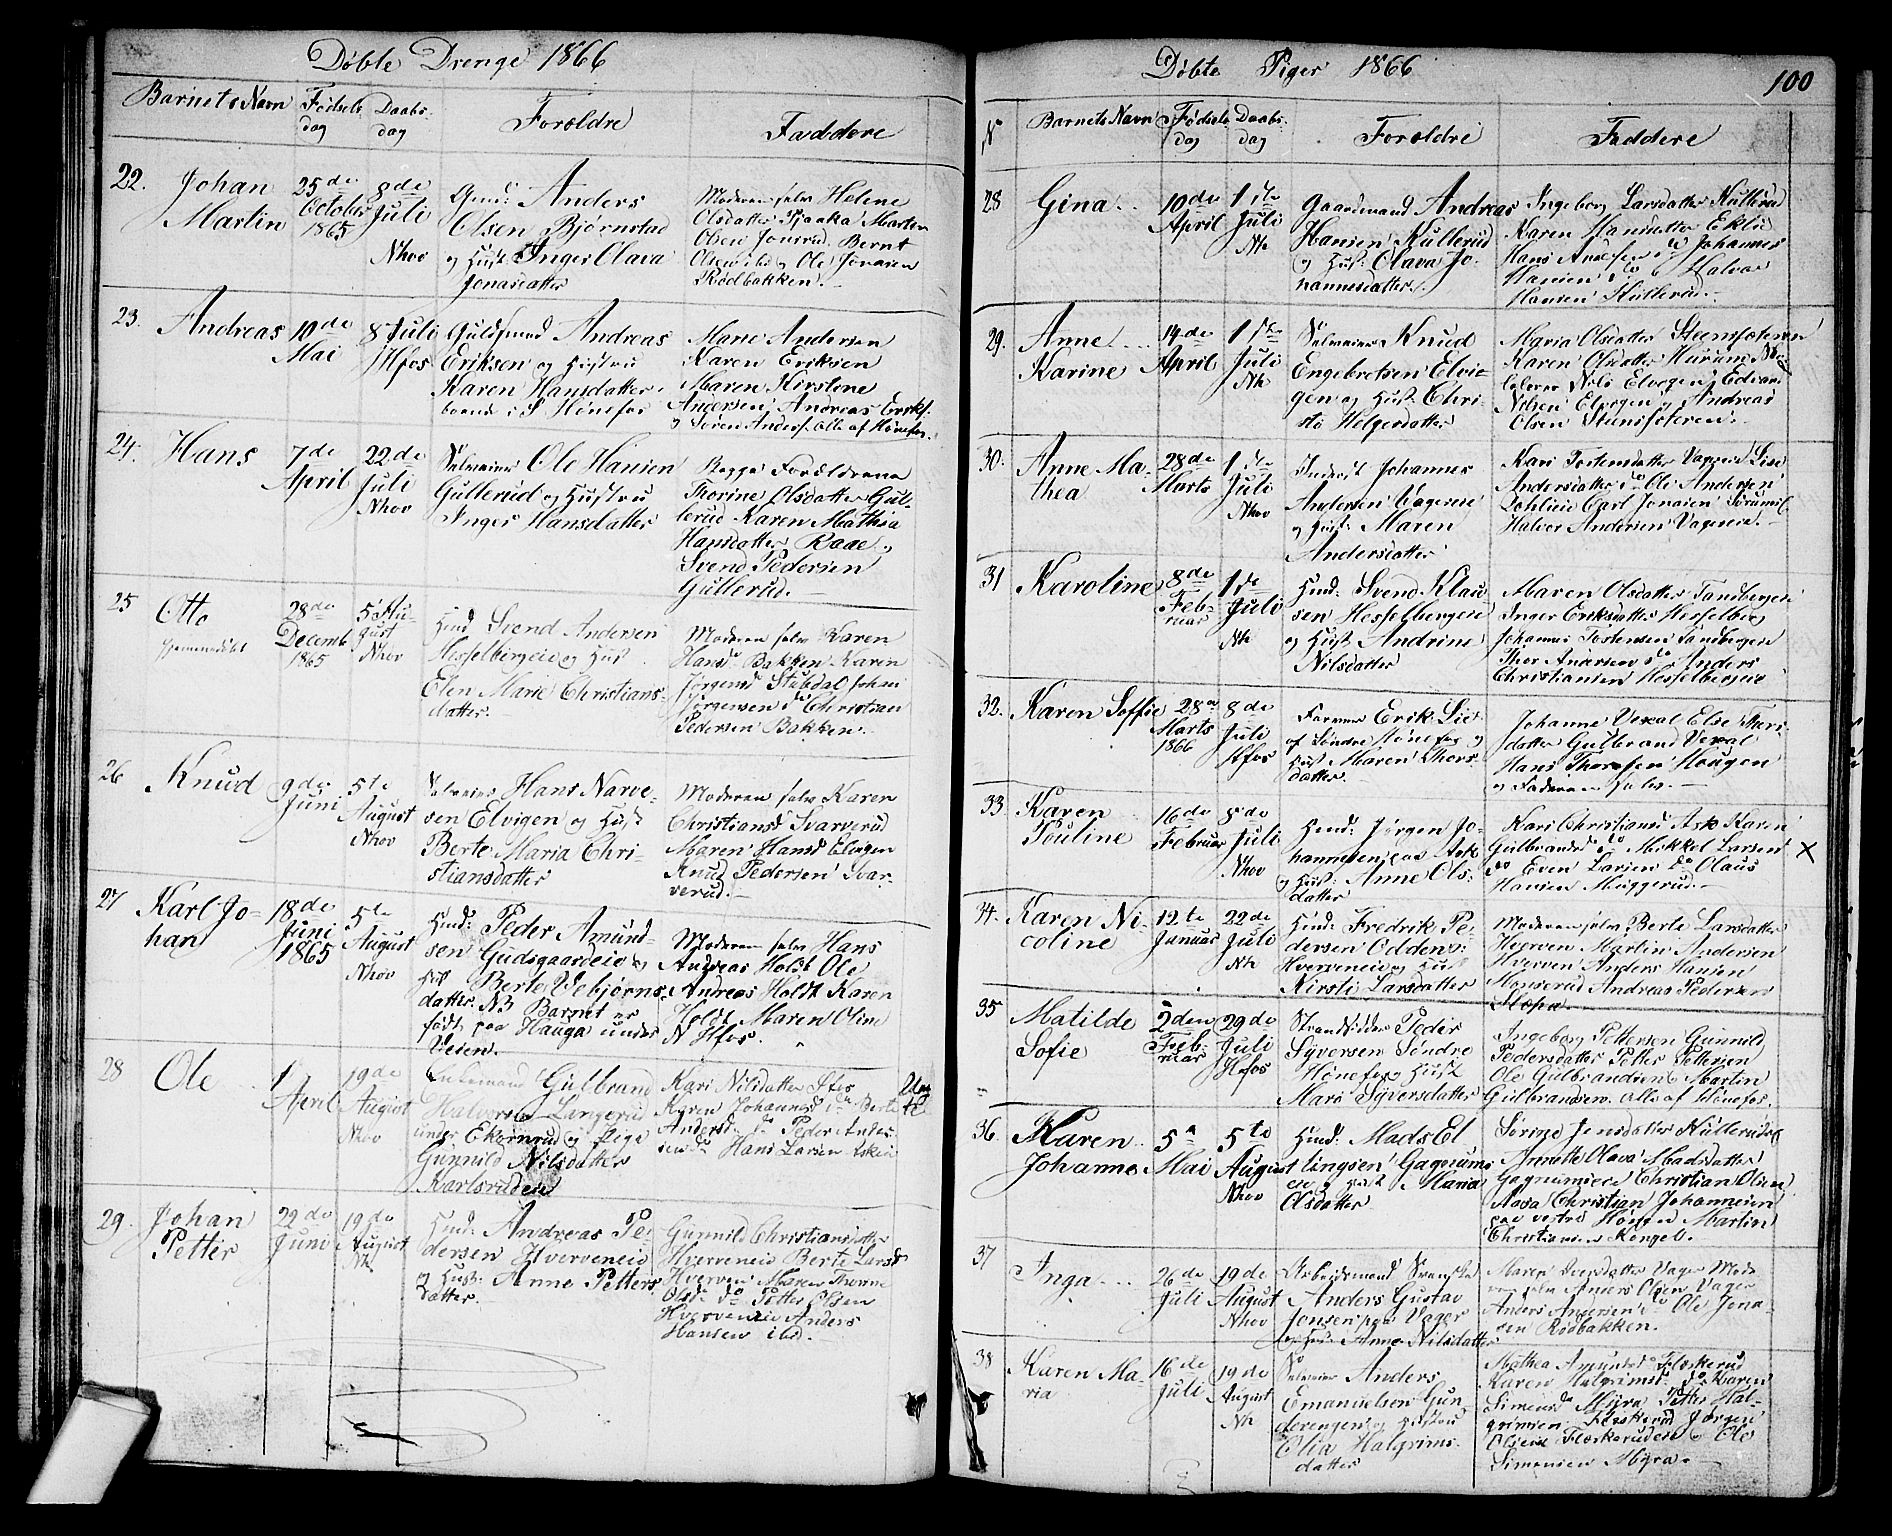 Døbte Drenge 1866
Barnets Navn Fødsels dag Daabs dag Forældre Faddere
22. Johan Martin
25de October 1865
8de Juli Nhov
Anders
Olsen Bjørnstad
og Hust. Inger Olava
Jonasdatter
Moderen selv Helene
Olsdatter Marten
Olsen Bernt
Olsen ibd og Ole Jonasen
Rødbakken.
23. Andreas
10de Mai
8 Juli Hfos
Guldsmed Andreas
Eriksen og Hustru
Karen Hansdatter
boende i S Hønefos
Marie Andersen
Karen Eriksen
Maren Kirstine
Andersen Andreas Eriks.
og Søren Anders. Alle af Hønefos.
24. Hans
7de April
22de Juli Nhov
Ole Hansen
Gullerud og Hustru
Inger Hansdatter
Begge Forældrene
Thorine Olsdatter Gul-
lerud Karen Mathia
Hansdatter Raae og
Svend Pedersen
Gullerud.
25 Otto
hjemmedøbt
28de Decemb 1865
5 August Nhov
Hmd. Svend Andersen
Hesselbergeie og Hust
Elen Marie Christians-
datter.
Moderen selv Karen
Hansd Bakken Karen
Jørgensd Stubdal Johan
Jørgensen do Christian
Pedersen Bakken.
26 Knud
9de Juni
5te August Nhov
Hans Narve-
sen Elvigen og Hust
Berte Maria Chri-
stiansdatter
Moderen selv Karen
Christiansd Svarverud
Maren Hansd Elvigen
Knud Pedersen Svar-
verud.
27 Karl Jo-
han
18de Juni 1865
5te August Nhov
Hmd: Peder Amund-
sen Gudsgaardeie og
Hust Berte Vebjørns-
datter. NB Barnet er
født paa Hauga under
Veien.
Moderen selv Hans
Andreas Holdt Ole
Andreas Holdt Karen
Holdt Maren Oline
N Hfos.
28 Ole
1 April
19de August Nhov
Enkemand Gulbrand
Halvorsen Langerud
under Ekornrud og Pige
Gunnild Nilsdatter
Karlsrudeie
Kari Nilsdatter
Karen Johannesd do Berte
Andersd do Peder Anders-
send do Hans Larsen Asken
29. Johan
Petter
22de Juni
19de August Nh
Hmd: Andreas Pe-
dersen Hverveneie
og Hust: Anne Petters-
datter.
Gunnild Christiansdatter
Hverveneie Berte Larsd
Hverven Maren Thorine
Olsd do Petter Olsen
Hverveneie Anders
Hansen ibd.
Døbte Piger 1866
100
N Barnets Navn Fødsels dag Daabs dag Forældre Faddere
28 Gina
10de April
1ste Juli Nh
Gaardmand Andreas
Hansen Kullerud
og Hust: Olava Jo-
hannesdatter.
Ingeborg Larsdatter Kullerud
Karen Hansdatter
Hans do Johannes
Hansen do Halvor
Hansen Kullerud.
29. Anne
Karine
14de April
1ste Juli Nh
Knud
Engebretsen Elvi-
gen og Hust Chri-
sti Helgesdatter
Maria Olsdatter
Karen Olsdatter
Nils Elvegen Edvard
Nilsen Elvegen og Andreas
Olsen
30. Anne Ma-
thea
28de Marts
1ste Juli Nhov
Inderst Johannes
Andersen Vagereie
og Hust: Maren
Andersdatter
Kari Tostensdatter Lise
Andersdatter do Ole Andersen
Carl Jonasen
Halvor Andersen
31 Karoline
8de Februar
1ste Juli Nh
Hmd: Svend Klau-
sen Hesselbergeie
og Hust. Andrine
Nilsdatter
Maren Olsdatter Tandbergeie
Inger Eriksdatter Hesselberg
Johannes Tostensen Tandbergeie
Thor Andersen do Anders
Christiansen Hesselbergeie
32. Karen Soffie
28de Marts 1866
8de Juli Hfos
Farver Erik
af Søndre Hønefos og
Hust Maren Thors-
datter
Johanne Vexal Else
datter Gulbrand Vexal
Hans Haugen
og Faderen selv.
33 Karen
Pouline
16de Februar
8de Juli Nhov
Hmd: Jørgen Jo-
hannesen paa Ask
og Hust: Anne Ols-
datter
Kari Christiansd Ask Karen
Gulbrandsd do Mikkel Larsen
do Even Larsen do Olaus
Hansen
X
34. Karen Ni-
coline
12te Januar
22de Juli Nh
Hmd: Fredrik Pe-
dersen Odden
Hverveneie og Hust
Kirsti Larsdatter
Moderen selv Berte Larsdatter
Hverven Martin Andersen
Hverven Anders Hansen
Andreas Pedersen
35 Matilde
Sofie
2den Februar
29de Juli Hfos
Peder
Syversen Søndre
Hønefos og Hust
Mari Syversdatter
Ingeborg Pettersen Gunnild
Pedersdatter Petter Pettersen
Ole Gulbrandsen Martin
Gulbrandsen. Alle af Hønefos.
36. Karen
Johanne
5te Mai
5te August Nhov
Hmd: Mads El-
lingsen Gagnums-
eie og Hust Maria
Olsdatter
Sørine Jensdatter
Annette Olava Madsdatter
Christian Olsen
Aasa Christian Johannesen
paa vestre Hønen Martin
Christiansen Rongel.
37 Inga
26de Juli
19de August Nhov
Arbeidsmand Svenske
Anders Gustav
Jonsen paa Vager
og Hust: Anne Nilsdatter
Vager
Anders Olsen Vager
Anders Andersen do Ole Jona-
sen Rødbakken.
38 Karen Ma-
ria
16de Juli
19de August Nh
Anders
Emanuelsen Gun-
derengen og Hustru
Olia Halgrims-
datter
Mathea Amundsd Flaskerud
Karen Halgrimsd: do Karen
Simensd Myra Petter Hal-
grimsen Flaskerud Jørgen
Olsen Flaskerudeie og Ole
Simensen Myra.